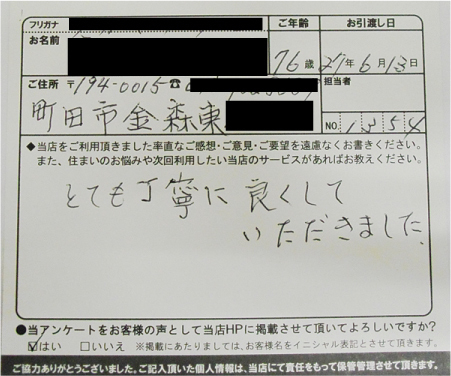 フリガナ
お名前
ご年齢
76歳
お引渡し日
27年6月13日
ご住所 〒194-0015 ☎
町田市金森東
担当者
NO. 1354
◆当店をご利用頂きました率直なご感想・ご意見・ご要望を遠慮なくお書きください。
また、住まいのお悩みや次回利用したい当店のサービスがあればお教えください。
とても丁寧に良くして
いただきました。
●当アンケートをお客様の声として当店HPに掲載させて頂いてよろしいですか?
☑はい □いいえ ※掲載にあたりましては、お客様名をイニシャル表記とさせて頂きます。
ご協力ありがとうございました。ご記入頂いた個人情報は、当店にて責任をもって保管管理させて頂きます。